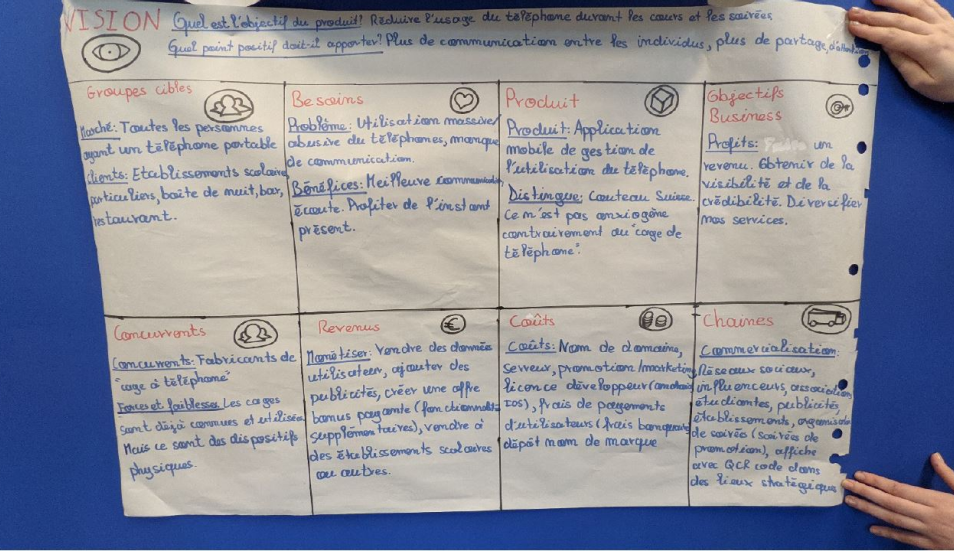 VISION Quel est l'objectif du produit? Réduire l'usage du téléphone durant les cours et les soirées
Quel point positif doit-il apporter? Plus de communication entre les individus, plus de partage, d'attention
Groupes cibles
Marché: Toutes les personnes
ayant un téléphone portable
clients: Etablissements scolaires,
particuliers, boite de nuit, bar,
restaurant.
Besoins
Problème: Utilisation massive/
abusive du téléphones, manque
de communication.
Bénéfices: Meilleure communication
écoute. Profiter de l'instant
présent.
Produit
Produit: Application
mobile de gestion de
l'utilisation du téléphone.
Distingue: Couteau Suisse.
Ce n'est pas anxiogène
contrairement au "cage de
téléphone".
Objectifs
Business
Profits: un
revenu. Obtenir de la
visibilité et de la
crédibilité. Diversifier
nos services.
Concurrents
Concurrents: Fabricants de
"cage à téléphone"
Forces et faiblesses Les cages
sont déjà connues et utilisées
Mais ce sont des dispositifs
physiques.
Revenus
€
Monétiser: Vendre des données
utilisateur, ajouter des
publicités, créer une offre
bonus payante (fonctionnalités
supplémentaires), vendre à
des établissements scolaires
ou autres.
Coûts
Coûts: Nom de domaine,
serveur, promotion/marketing
licence développeur (android
IOS), frais de payements
d'utilisateurs (frais banquaires
dépôt nom de marque
Chaines
Commercialisation:
Réseaux sociaux,
influenceurs, association
étudiantes, publicités,
établissements, organisateurs
de soirées (soirées de
promotion), affiche
avec QCR code dans
des lieux stratégiques